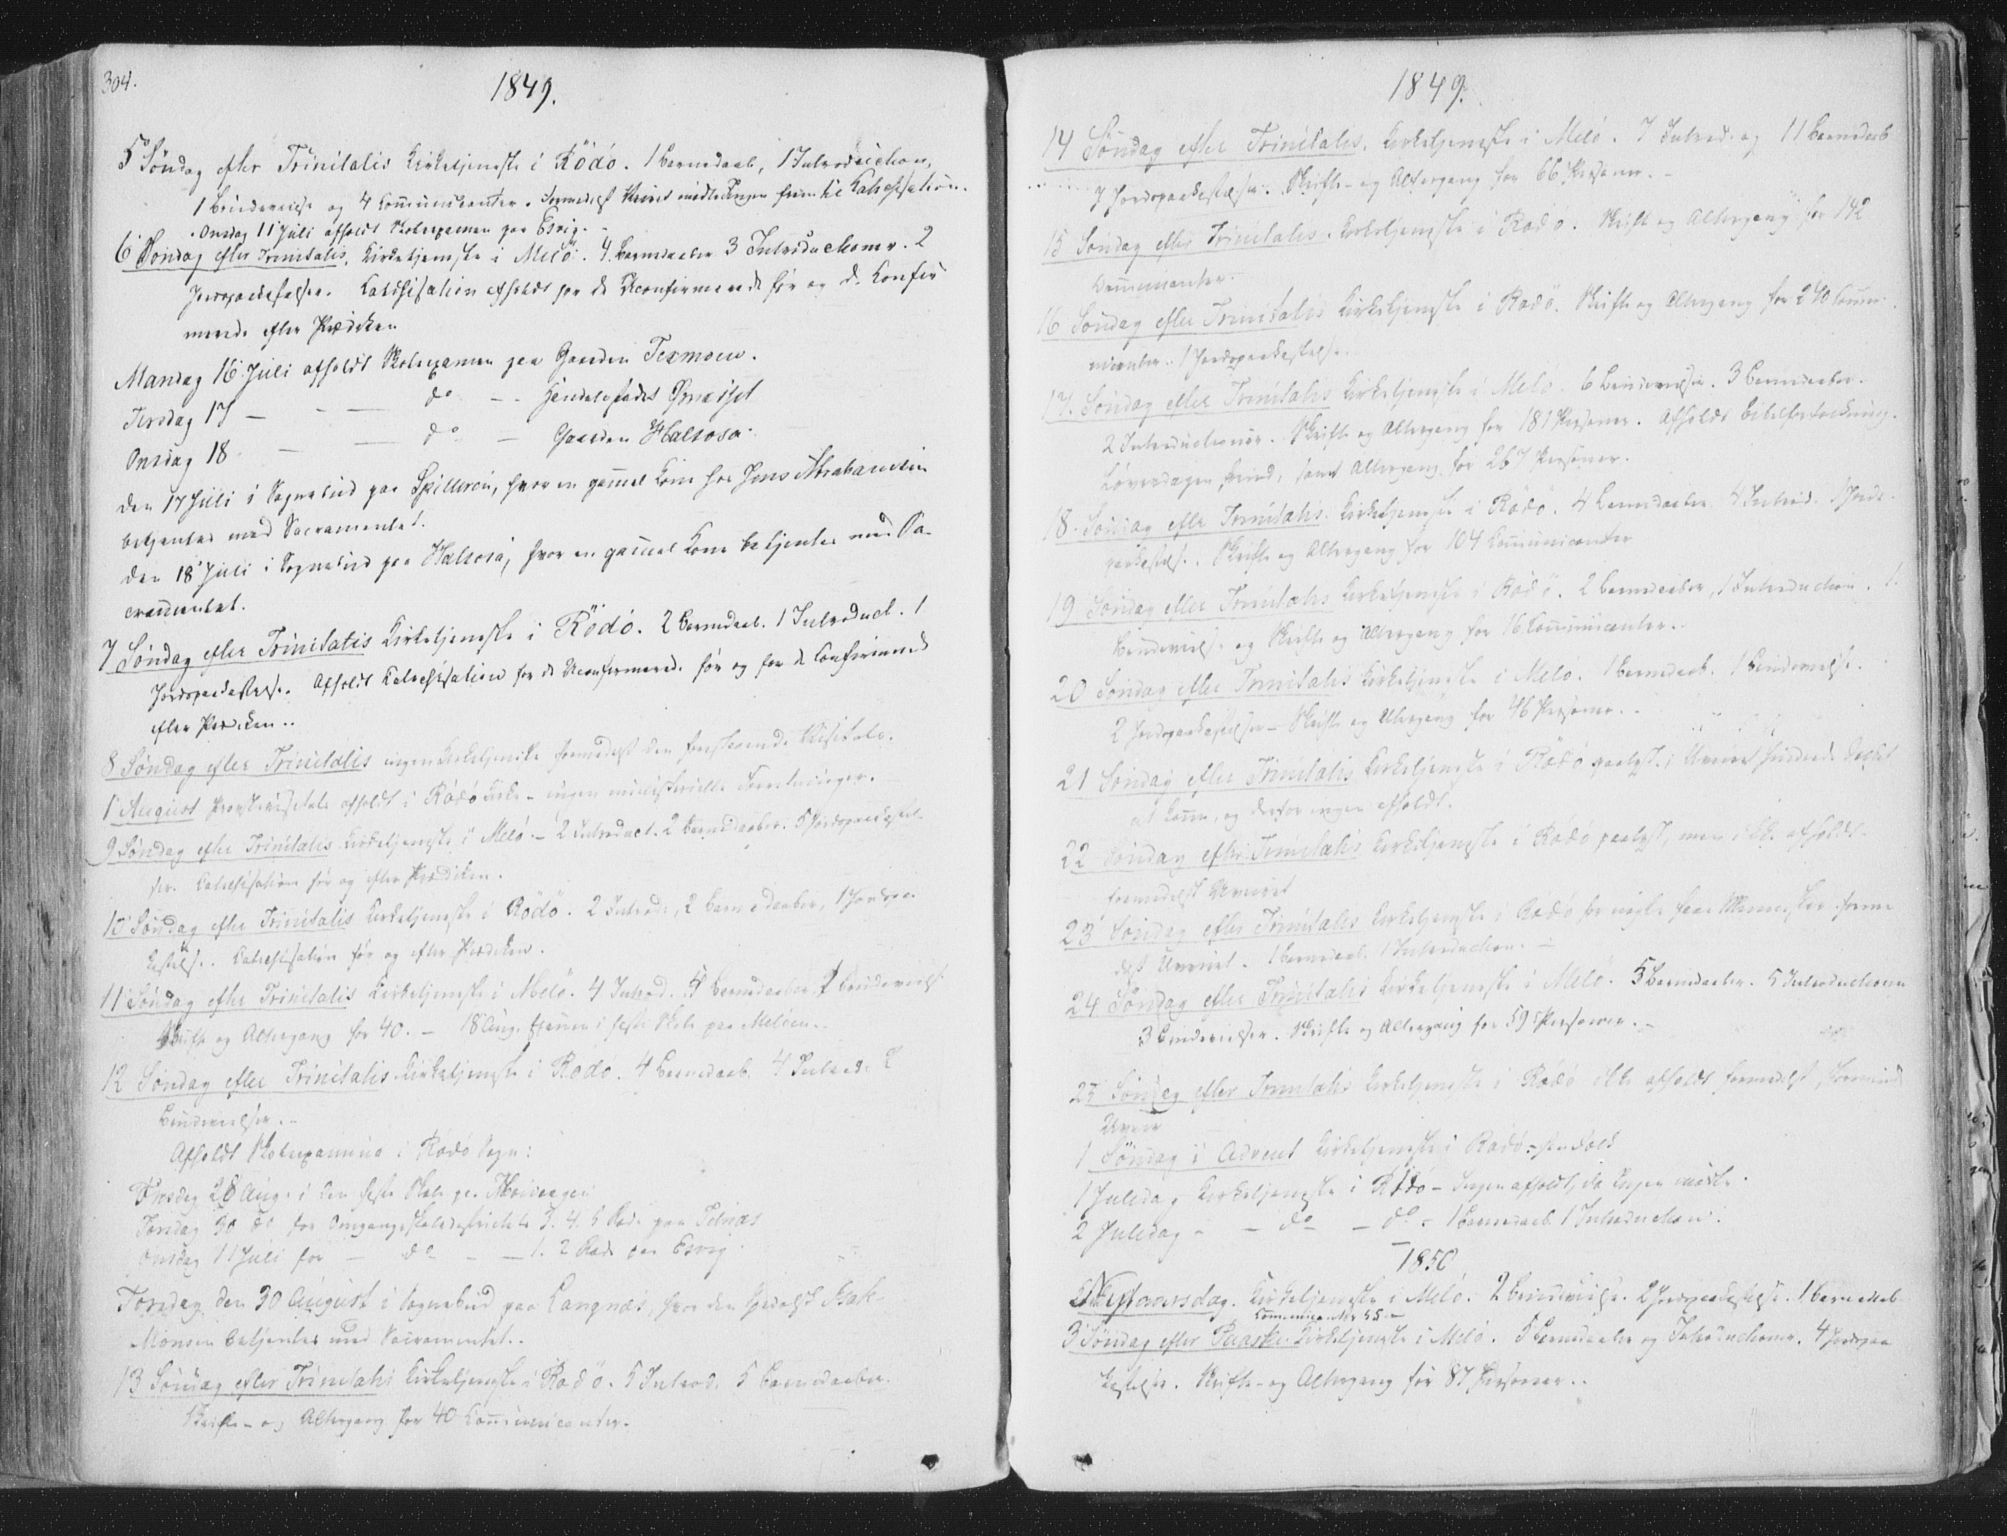 304.
1849.
5 Søndag efter Trinitatis Kirketjeneste i Rödö. 1 Barnedaab, 1 Introduction,
1 Brudevielse og 4 Communicanter. Formedelst Veiret ingen Catechisation.
Onsdag 11 Juli afholdt Skoleexamen paa Esvig.
6 Søndag efter Trinitatis, Kirketjeneste i Melö. 4 Barnedaaber 3 Introductioner. 2
Jordpaakastelser. Catechisation afholdt for de Uconfirmerede før og de Confir
merede efter Prædiken
Mandag 16 Juli afholdt Skoleexamen paa Gaarden Texmoen.
Tirsdag 17 — — — do — - Handelsstedet Ørnæs
Onsdag 18 — — do — Gaarden Halsosa.
Den 17 Juli i Sognebud paa Spilleren, hvor en gammel Kone hos Jens Abrahamsen
betjentes med Sacramentet.
Den 18 Juli i Sognebud paa Halsosa, hvor en gammel Kone betjentes med Sa-
cramentet.
7 Søndag efter Trinitatis Kirketjeneste i Rödö. 2 Barnedaab. 1 Introduct. 1
Jordpaakastelse. Afholdt Catechisation for de Uconfirmerede før og for de Confirmered
efter Prædiken..
8 Søndag efter Trinitatis ingen Kirketjeneste formedelst den forestaaende Visitats.
1 August Provstevisitats afholdt i Rödö Kirke - ingen ministerielle Forretninger.
9 Søndag efter Trinitatis Kirketjeneste i Melö. - 2 Introduct. 2 Barnedaaber. 5 Jordpaakastel-
ser. Catechisation før og efter Prædiken.
10 Søndag efter Trinitatis Kirketjeneste i Rödö. 2 Introd., 2 Barnedaaber, 1 Jordpaa
kastelse. Catechisation før og efter Prædiken.
11 Søndag efter Trinitatis Kirketjeneste i Melö. 4 Introd. 5 Barnedaaber 1 Brudevielse
Skrifte og Altergang for 40. - 18 Aug. Examen i faste Skole paa Melöen..
12 Søndag efter Trinitatis Kirketjeneste i Rödö. 4 Barnedaab. 4 Introd. 2
Brudevielser..
Afholdt Skoleexamina i Rödö Sogn:
Tirsdag 28 Aug. i den faste Skole paa
Torsdag 30 do for Omgangsskoledistrikterne 3. 4. 5 Rode paa Selnæs
Onsdag 11 Juli for — do — — 1. 2 Rode paa Esvig
Torsdag den 30 August i Sognebud paa Langnæs, hvor den Isak
Monsen betjentes med Sacramentet..
13 Søndag efter Trinitatis Kirketjeneste i Rödö. 5 Introd. 5 Barnedaaber.
Skrifte- og Altergang for 40 Communicanter.
1849.
14 Søndag efter Trinitatis, Kirketjeneste i Melö. 7 Introd. og 11 Barnedaab
7 Jordpaakastelser. Skrifte- og Altergang for 66 Personer. -
15 Søndag efter Trinitatis. Kirketjeneste i Rödö. Skrifte og Altergang for 142
Communicanter.
16 Søndag efter Trinitatis Kirketjeneste i Rödö. Skrifte og Altergang for 240 Commu-
nicanter. 1 Jordpaakastelse.
17. Søndag efter Trinitatis Kirketjeneste i Melö. 6 Brudevielser. 3 Barnedaaber.
2 Introductioner. Skrifte og Altergang for 181 Personer. Afholdt Bibelforklaring.
Løverdagen, samt Altergang for 267 Personer.
18. Søndag efter Trinitatis. Kirketjeneste i Rödö. 4 Barnedaaber 4 Introd. 1 Jord-
paakastelse. Skrifte og Altergang for 104 Communicanter
19 Søndag efter Trinitatis Kirketjeneste i Rödö. 2 Barnedaaber, 1 Introduction. 1.
Brudevielse og Skrifte og Altergang for 16 Communicanter..
20 Søndag efter Trinitatis Kirketjeneste i Melö. 1 Barnedaab. 1 Brudevielse.
2 Jordpaakastelser - Skrifte og Altergang for 46 Personer..
21 Søndag efter Trinitatis Kirketjeneste i Rödö paalyst; Uveiret hindrede Folket
at komme, og derfor ingen afholdt.
22 Søndag efter Trinitatis Kirketjeneste i Rödö paalyst, men ikke afholdt
formedelst Uveiret
23 Søndag efter Trinitatis Kirketjeneste i Rödö for nogle faae Mennesker forme
delst Uveiret. 1 Barnedaab. 1 Introduction. -
24 Søndag efter Trinitatis Kirketjeneste i Melö. 5 Barnedaaber. 5 Introductioner
3 Brudevielser. Skrifte og Altergang for 59 Personer.. -
25 Søndag efter Trinitatis Kirketjeneste i Rödö ikke afholdt formedelst
Uveir
1 Søndag i Advent Kirketjeneste i Rödö
1 Juledag Kirketjeneste i Rödö - Ingen afholdt, da Ingen mødte.
2 Juledag - - do - do - 1 Barnedaab. 1 Introduction.
1850
Nytaarsdag. Kirketjeneste i Melö. 2 Brudevielse. 2 Jordpaakastelse. 1 Barnedaab
Communicanter 55 -
3 Søndag efter Paaske Kirketjeneste i Melö. 5 Barnedaaber og Introductioner. 4 Jordpaa
kastelser. Skrifte- og Altergang for 87 Personer..